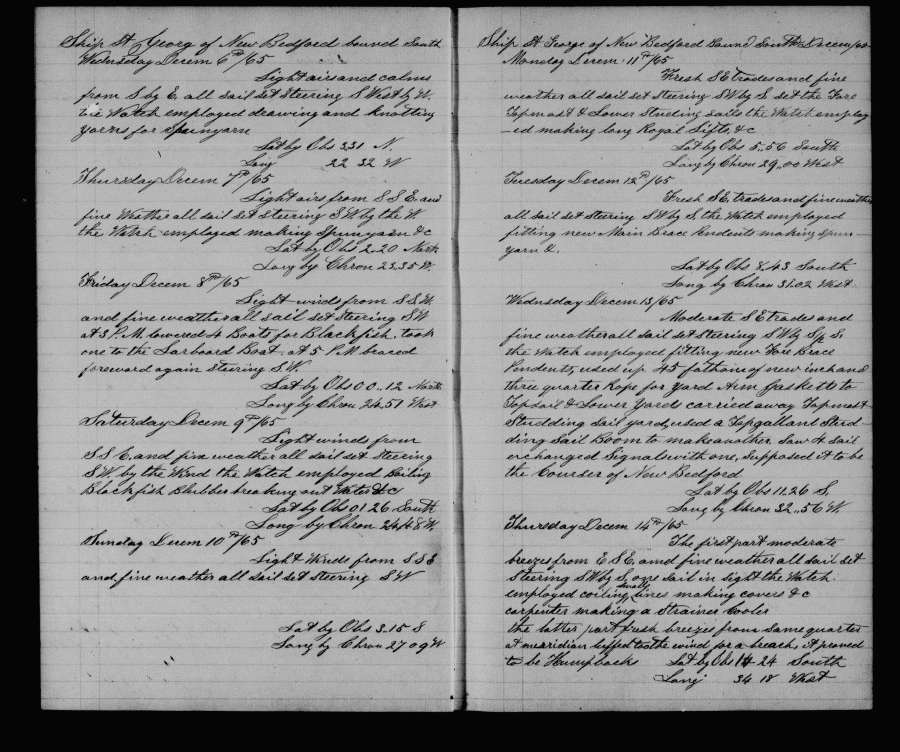 Ship St Georg of New Bedford bound South
Wednsday Decem 6th/65
Light airs and calms
from S by E. all sail set Steering S West by W.
the Watch employed drawing and knotting
yarns for Spunyarn
Lat by Obs 3.31 N.
Long 22 32 W
Thursday Decem 7th/65
Light airs from S S E. and
fine Weather all sail set Steering S W by the W
the Watch employed making Spunyarn &c
Lat by Obs 2..20 North
Long by Chron 23.35 W.
Friday Decem 8th/65
Light winds from S S. W
and fine weather all sail set steering S W
at 3 P. M lowered 4 Boats for Blackfish, took
one to the Larboard Boat. at 5 P M braced
foreword again Steering S W
Lat by Obs 00..12 North
Long by Chron 24.51 West
Saturday Decem 9th/65
Light winds from
S S E. and fine weather all sail set Steering
S W. by the Wind the Watch employed Boiling
Blackfish Blubber breaking out Water &c
Lat by Obs 01 26 South
Long by Chron 24.48 W.
Sunday Decem 10th/65
Light Winds from S S E
and fine weather all sail set Steering S W
Lat by Obs 3.15 S
Long by Chron 27 09 W
Ship St George of New Bedford Bound South Decem/65
Monday Decem 11th/65
Fresh S E trades and fine
weather all sail set Steering S W by S. set the Fore
Topmast & Lower Studing sails the Watch employ
-ed making long Royal Lifts, &c
Lat by Obs 5..56 South
Long by Chron 29..00 West
Tuesday Decem 12th/65
Fresh S E, trades and fine weather
all sail set Steering S W by S, the Watch employed
fitting new Main Brace Pendents making spun-
yarn &.
Lat by Obs 8.43 South
Long by Chron 31.02 West
Wednsday Decem 13/65
Moderate S E trades and
fine weather all sail set Steering S W by S 1/2 S.
the Watch employed fitting new Fore Brace
Pendents, used up 45 fathom of new inch and
three quarter Rope for Yard Arm Gaskets to
Topsail & Lower Yards carried away Topmast
Studding sail yard, used a Topgallant Stud-
ding sail Boom to make another. Saw 4 sail
exchanged Signals with one, supposed it to be
the Courser of New Bedford
Lat by Obs 11.26 S,
Long by Chron 32..56 W.
Thursday Decem 14th/65
The first part moderate
breezes from E S E, and fine weather all sail set
Steering S W by S, one sail in sight the Watch
employed coiling small lines making covers &c
carpenter making a Strainer Cooler
the latter part fresh breezes from same quarter
at meridian luffed to the wind for a breach, it proved
to be Humpbacks Lat by Obs 14 24 South
Long 34 18 West